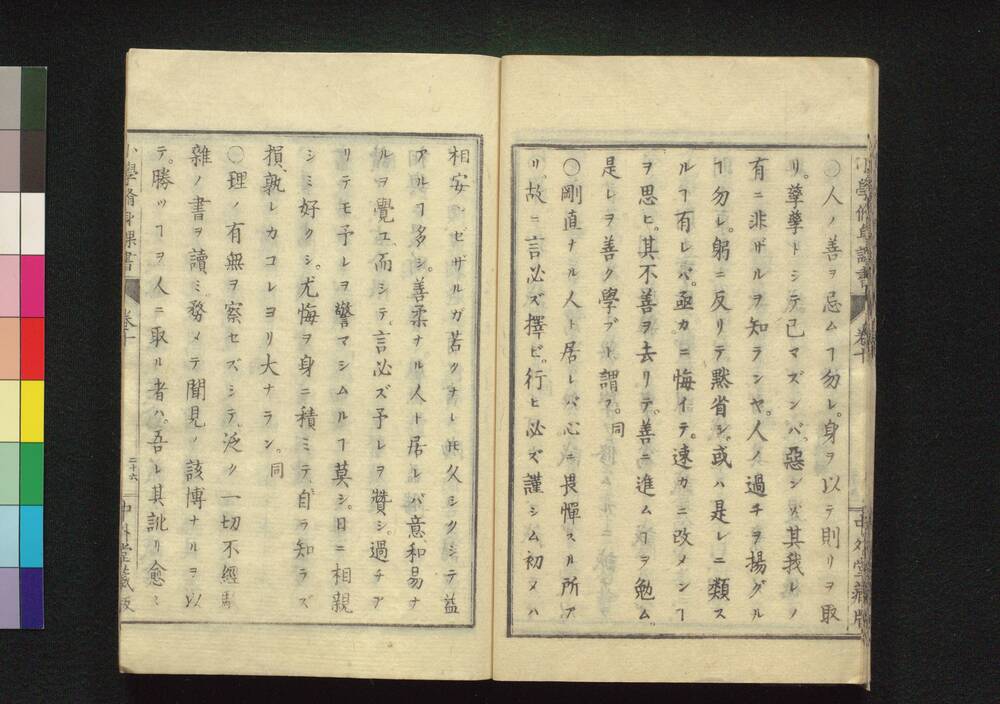 〇人ノ善ヲ忌ムヿ勿レ。身ヲ以テ則リヲ取
リ。孳孳トシテ已マズンバ。惡ンゾ其我レノ
有ニ非ザルヲ知ランヤ。人ノ過チヲ揚グル
ヿ勿レ。躬ニ反リテ黙省シ。或ハ是レニ類ス
ルヿ有レバ。亟カニ悔イテ。速カニ改メンヿ
ヲ思ヒ。其不善ヲ去リテ。善ニ進ムヿヲ勉ム。
是レヲ善ク學ブト謂フ。同
〇剛直ナル人ト居レバ心ニ畏憚スル所ア
リ。故ニ言必ズ擇ビ。行ヒ必ズ謹シム初メハ
相安ンゼザルガ若クナレ𪜈久シクシテ益
アルヿ多シ。善柔ナル人ト居レバ意和易ナ
ルヲ覺ユ。而シテ。言必ズ予レヲ贊シ。過チア
リテモ予レヲ警マシムルヿ莫シ。日ニ相親
シミ好クシ。尤悔ヲ身ニ積ミテ自ラ知ラズ
損孰レカコレヨリ大ナラン。同
〇理ノ有無ヲ察セズシテ。泛ク一切不經
雜ノ書ヲ讀ミ務メテ聞見ノ該博ナルヲ以
テ。勝ツヿヲ人ニ取ル者ハ。吾レ其訛リ愈ミ
小學脩身課書
卷十
二十六
中外堂藏版